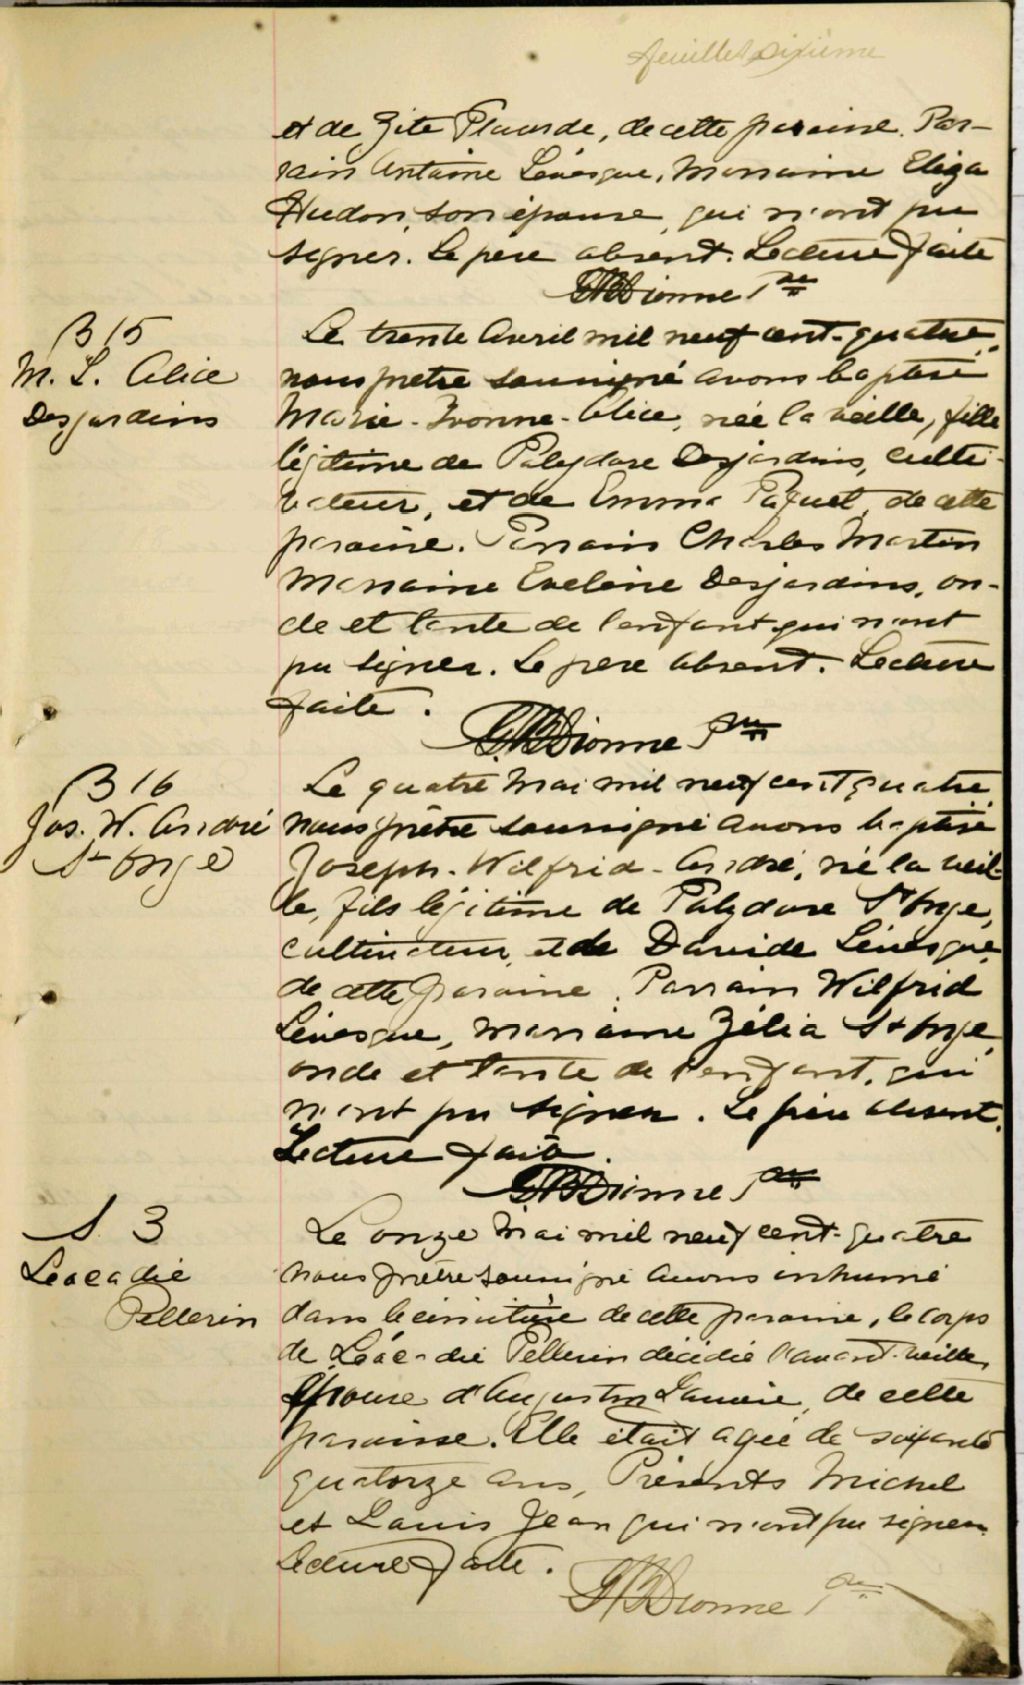 feuillet dixième
et de Zite Plourde, de cette paroisse. Par-
rain Antoine Lévesque, Marraine Eliza
Hudon, son épouse, qui n'ont pu
signer. Le père absent. Lecture faite
Dionne Ptre
B 15
M. L. Alice
Desjardins
Le trente Avril mil neuf cent-quatre,
nous prêtre soussigné avons baptisé
Marie-Ivonne-Alice, née la veille, fille
légitime de Polydore Desjardins, culti-
vateur, et de Emma Paquet, de cette
paroisse. Parrain Charles Martin
Marraine Eveline Desjardins, on-
cle et tante de l'enfant qui n'ont
pu signer. Le père absent. Lecture
faite.
Dionne Ptre
B 16
Jos. W. André
St Onge
Le quatre Mai mil neuf cent quatre
nous prêtre soussigné avons baptisé
Joseph-Wilfrid-André, né la veil-
le, fils légitime de Polydore St Onge,
cultivateur, et de Davide Lévesque,
de cette paroisse. Parrain Wilfrid
Lévesque, Marraine Zélia St Onge,
oncle et tante de l'enfant, qui
n'ont pu signer. Le père absent.
Lecture faite.
Dionne Ptre
S 3
Léocadie
Pellerin
Le onze Mai mil neuf cent-quatre
nous prêtre soussigné avons inhumé
dans le cimetière de cette paroisse, le corps
de Léocadie Pellerin décédée l'avant-veille,
Epouse d'Augustin de cette
paroisse. Elle était agée de soixante
quatorze ans, Présents Michel
et Louis Jean qui n'ont pu signer.
Lecture faite.
Dionne Ptre